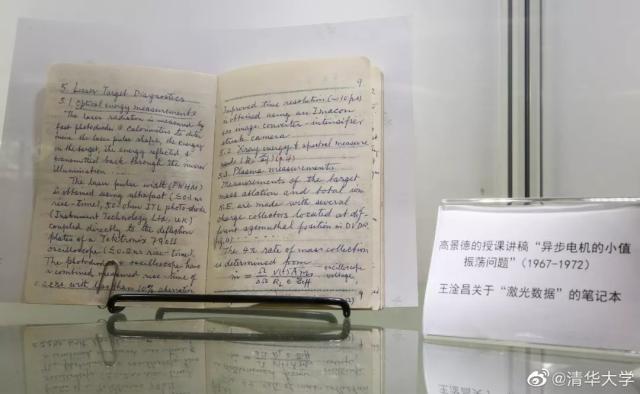 5 Laser Target Diagnostics
5.1 Optical energy measurements
The laser radiation is measured by
fast photodiodes & calorimeters to deter-
mine the laser pulse shape, the energy
on the target, the energy reflected &
transmitted back through the mirror
illumination
The laser pulse width (FWHM)
is obtained using ultrafast
rise-time), 50 ohm ITL photodiode
(Instrument Technology Ltd, U.K.)
coupled directly to the deflection
plates of a Tektronix
oscilloscope (≤0.8 ns rise-time).
The photodiode & oscilloscope have
a combined measured rise-time of
with less than 10% aberration
9
Improved time resolution (~10 ps)
is obtained using an Imacon
image converter-intensifier
streak camera
5.2 Xray energy & spectral measure
5.3 Plasma measurements
Measurements of the target
mass ablation and total ion
K.E. are made with several
charge collectors located at dif-
ferent azimuthal position in
The rate of mass collection
is determined from
oscilloscope
voltage
高景德的授课讲稿“异步电机的小值
振荡问题”(1967-1972)
王淦昌关于“激光数据”的笔记本
@清华大学